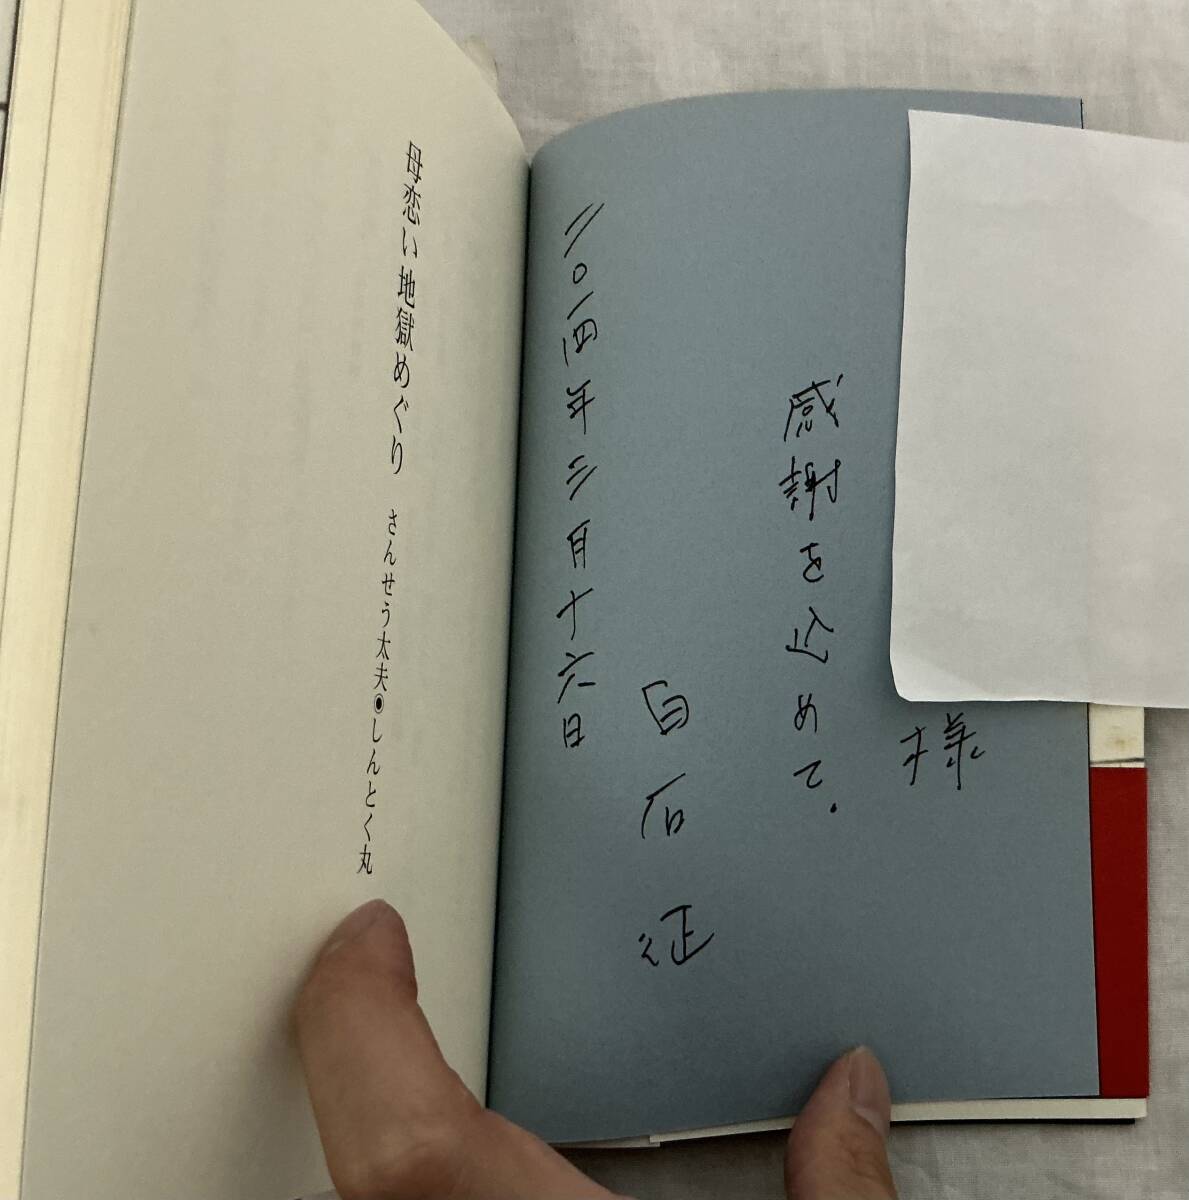 様
感謝を込めて.
白石征
二〇一四年三月十六日
母恋い地獄めぐり さんせう太夫◉しんとく丸